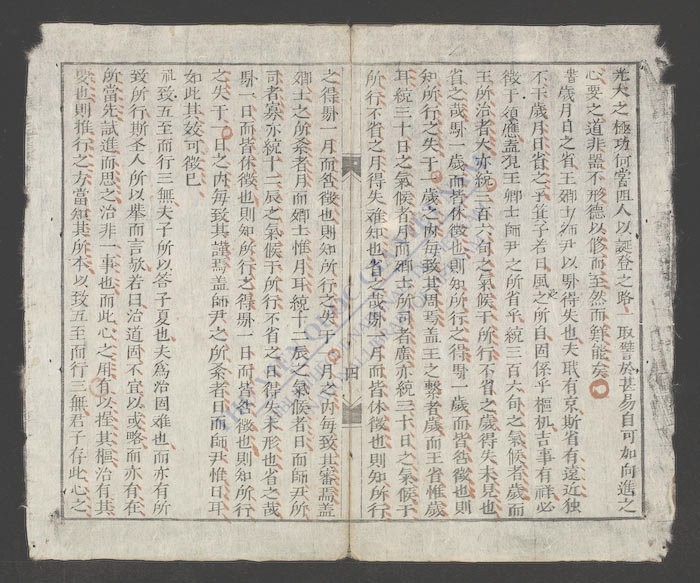 光大之極功何嘗阻人以誕登之路取譬於甚易自可加向進之
心要之道非器不形德以修而至然而難能矣
嘗歲月日之省王卿士師尹以騐得失也夫職有京斯省有遠近獨
不于歲月日省之乎箕子若曰風之所自固係乎樞机吉事有祥必
徵于須應盍覌王卿士師尹之所省乎統三百六旬之氣候者歲而
王所治者大亦統三百六旬之氣候于所行不省之歲得失未見也
省之哉騐一歲而皆休徵也則知所行之得騐一歲而皆咎徵也則
知所行之失于一歲之内每致其周焉盖王之繫者歲而王省惟歲
耳統三十日之氣候者月而卿士所司者廣亦統三十日之氣候于
所行不省之月得失难知也省之哉騐一月而皆休徵也則知所行
之得騐一月而皆咎徵也則知所行之失于一月之内每致其審焉盖
卿士之所系者月而卿士惟月耳統十二辰之氣候者日而師尹所
司者寡亦統十二辰之氣候于所行不省之日得失未形也省之哉
騐一日而皆休徵也則知所行之得騐一日而皆咎徵也則知所行
之失于一日之内每致其謹焉盖師尹之所系者日而師尹惟日耳
如此其效可徵已
致五至而行三無夫子所以答子夏也夫為治固难也而亦有所
致所行斯圣人所以舉而言欤若曰治道固不宜以或略而亦有在
所當先試進而思之治非一事也而此心之用有以握其樞治有其
要也則推行之方當知其所本以致五至而行三無君子存此心之
四